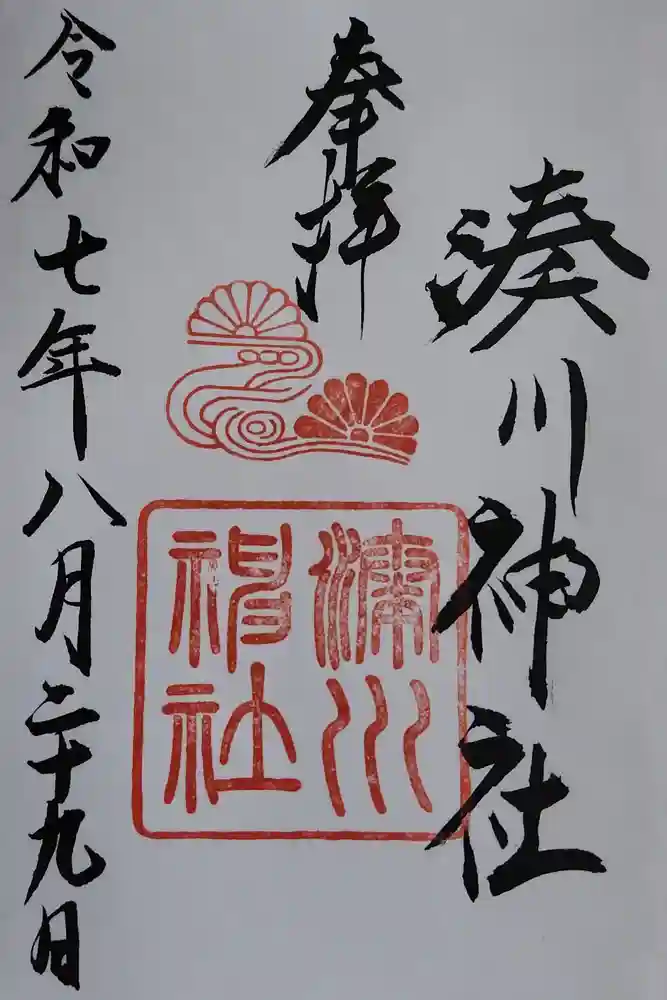 湊川神社
奉拝
令和七年八月二十九日
湊川
神社